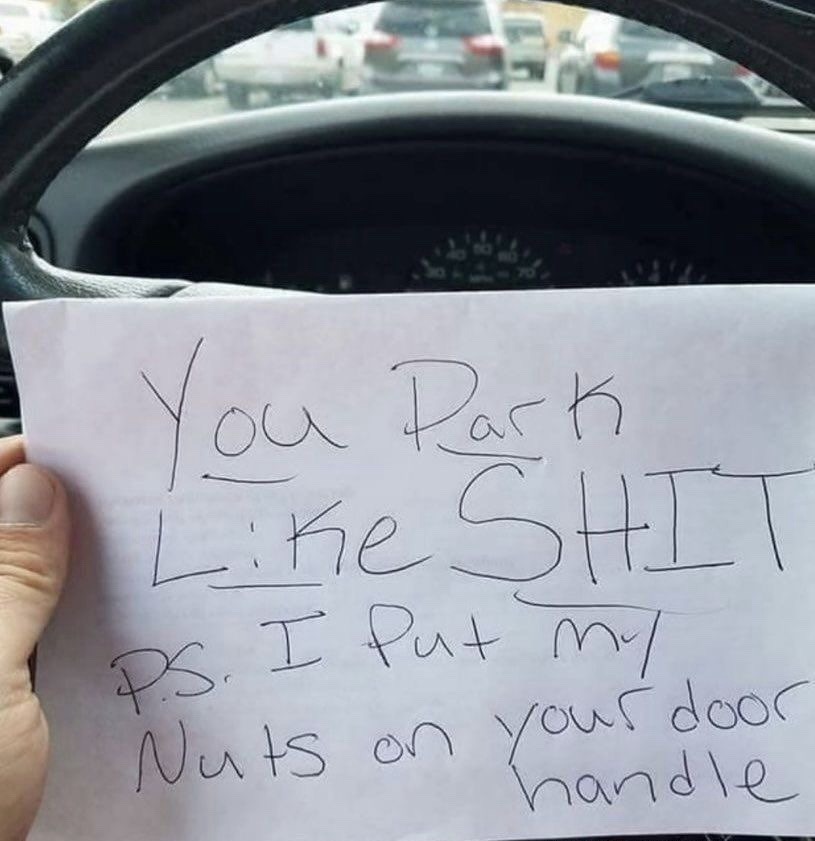 You Park
Like SHIT
P.S. I Put my
Nuts on your door
handle